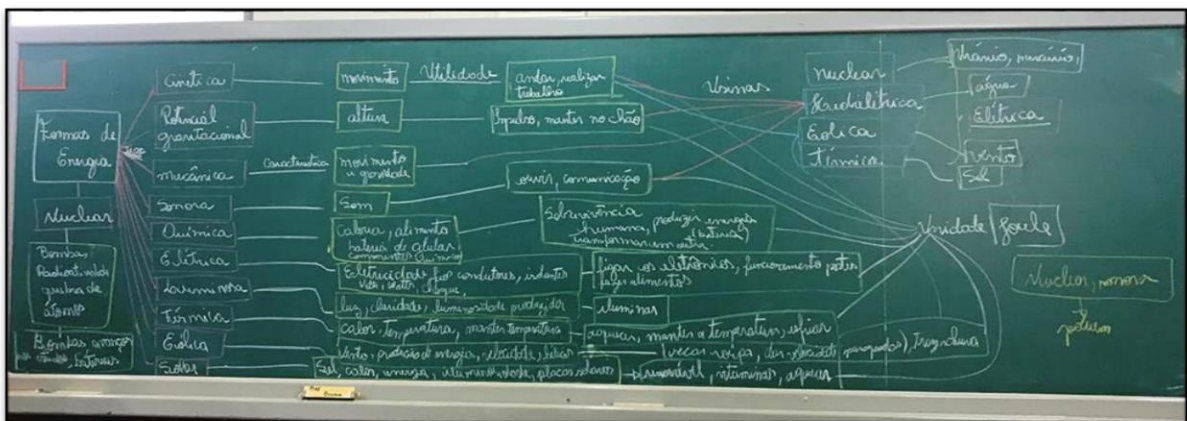 Formas de
Energia
Nuclear
Bombas
quebra de
átomo
Bombas
Cinética
Potencial
gravitacional
mecânica
Sonora
Química
Elétrica
Luminosa
Térmica
Eólica
Solar
movimento
altura
Característica
movimento
e gravidade
Som
Caloria, alimento
bateria de celular
componentes químicos
Eletricidade, fios condutores, isolantes
Volts, Watts, choque,
luz, claridade, luminosidade
calor, temperatura, manter temperatura
Vento, produção de energia, velocidade, hélice
Sol, calor, energia, placas solares
Utilidade
andar, realizar
trabalho
Impulso, manter no chão
ouvir, comunicação
Sobrevivência
humana, produzir energia
(bateria)
transformar em outra
ligar os eletrônicos, funcionamento
fazer alimentos
iluminar
aquecer, manter a temperatura, esfriar
secar roupa,
iluminar, aquecer
Usinas
nuclear
Hidrelétrica
Eólica
Térmica
Urânio,
água
Elétrica
vento
Sol
Unidade
Joule
Nuclear,